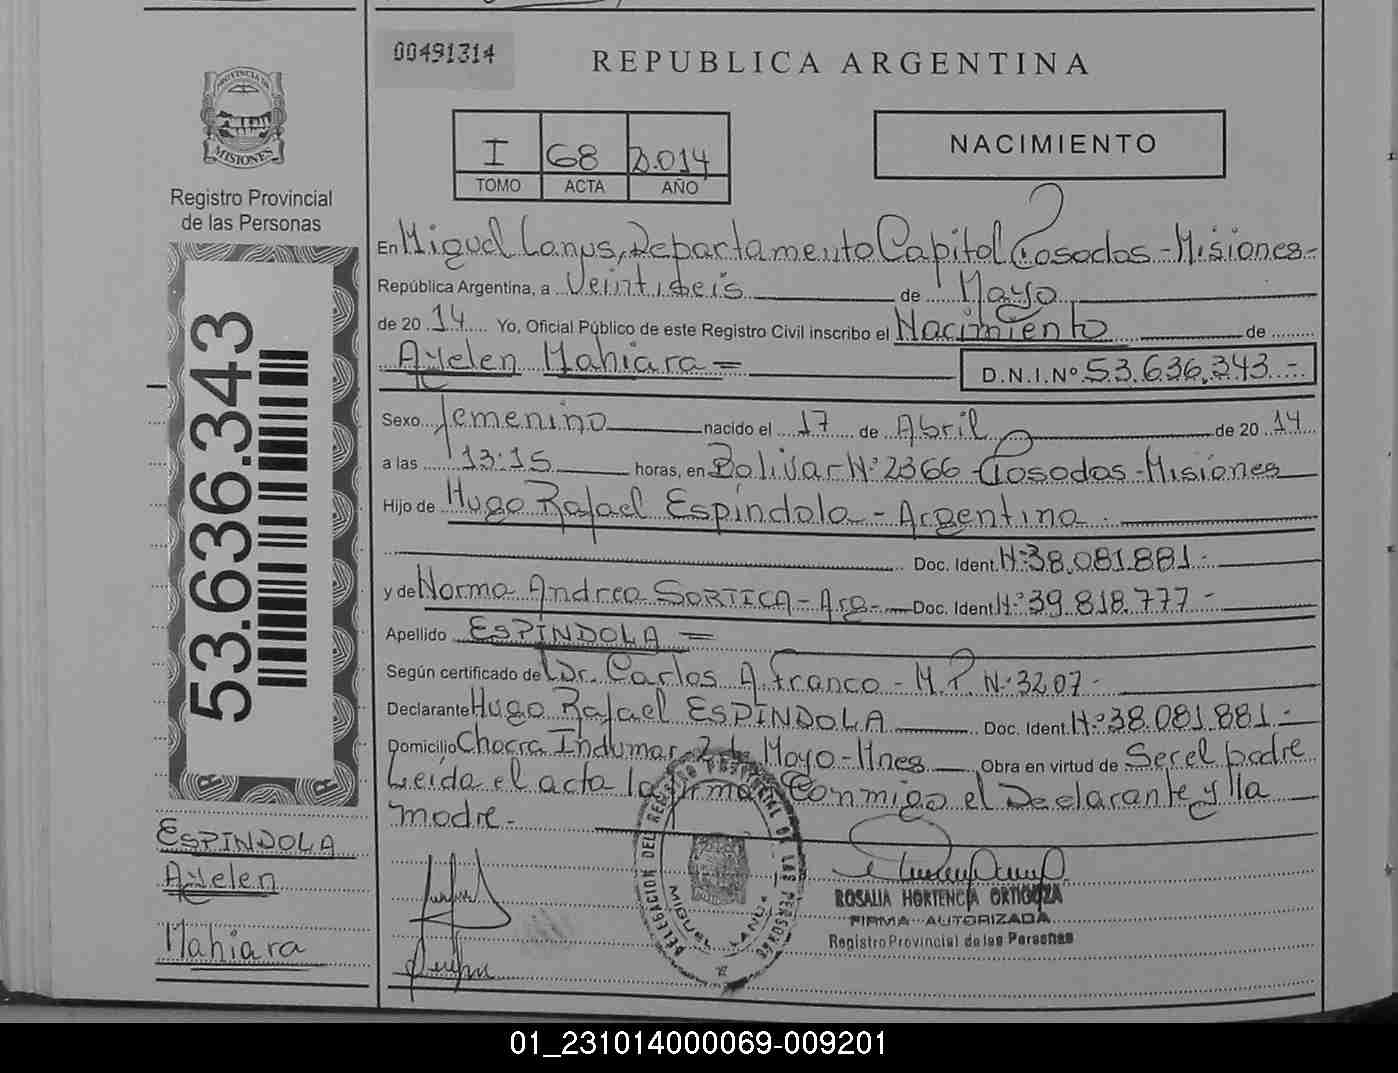 00491314
REPUBLICA ARGENTINA
PROVINCIA DE
MISIONES
Registro Provincial
de las Personas
I 68 2.014
TOMO ACTA AÑO
NACIMIENTO
En Miguel Lanus, Departamento Capital Posadas - Misiones -
República Argentina, a Veintiseis de Mayo
de 20 14 Yo, Oficial Público de este Registro Civil inscribo el Nacimiento de
Ayelen Mahiara = D.N.I.Nº 53.636.343.-
Sexo femenino nacido el 17 de Abril de 20 14
a las 13:15 horas, en Bolivar Nº 2366 - Posadas - Misiones
Hijo de Hugo Rafael Espíndola - Argentina
Doc. Ident. Nº 38.081.881.-
y de Norma Andrea SORTICA - Arg.- Doc. Ident. Nº 39.818.777 -
Apellido ESPÍNDOLA =
Según certificado de Dr. Carlos A. Franco - M.P. Nº 3207 -
Declarante Hugo Rafael ESPÍNDOLA Doc. Ident. Nº 38.081.881.-
Domicilio Chacra Indumar 2 de Mayo - Mnes Obra en virtud de Ser el padre
Leída el acta la firma Conmigo el Declarante y la
madre.-
53.636.343
ESPÍNDOLA
Ayelen
Mahiara
DELEGACION DEL REGISTRO PROVINCIAL DE LAS PERSONAS
MIGUEL LANUS
ROSALIA HORTENCIA ORTIGOZA
FIRMA AUTORIZADA
Registro Provincial de las Personas
01_231014000069-009201